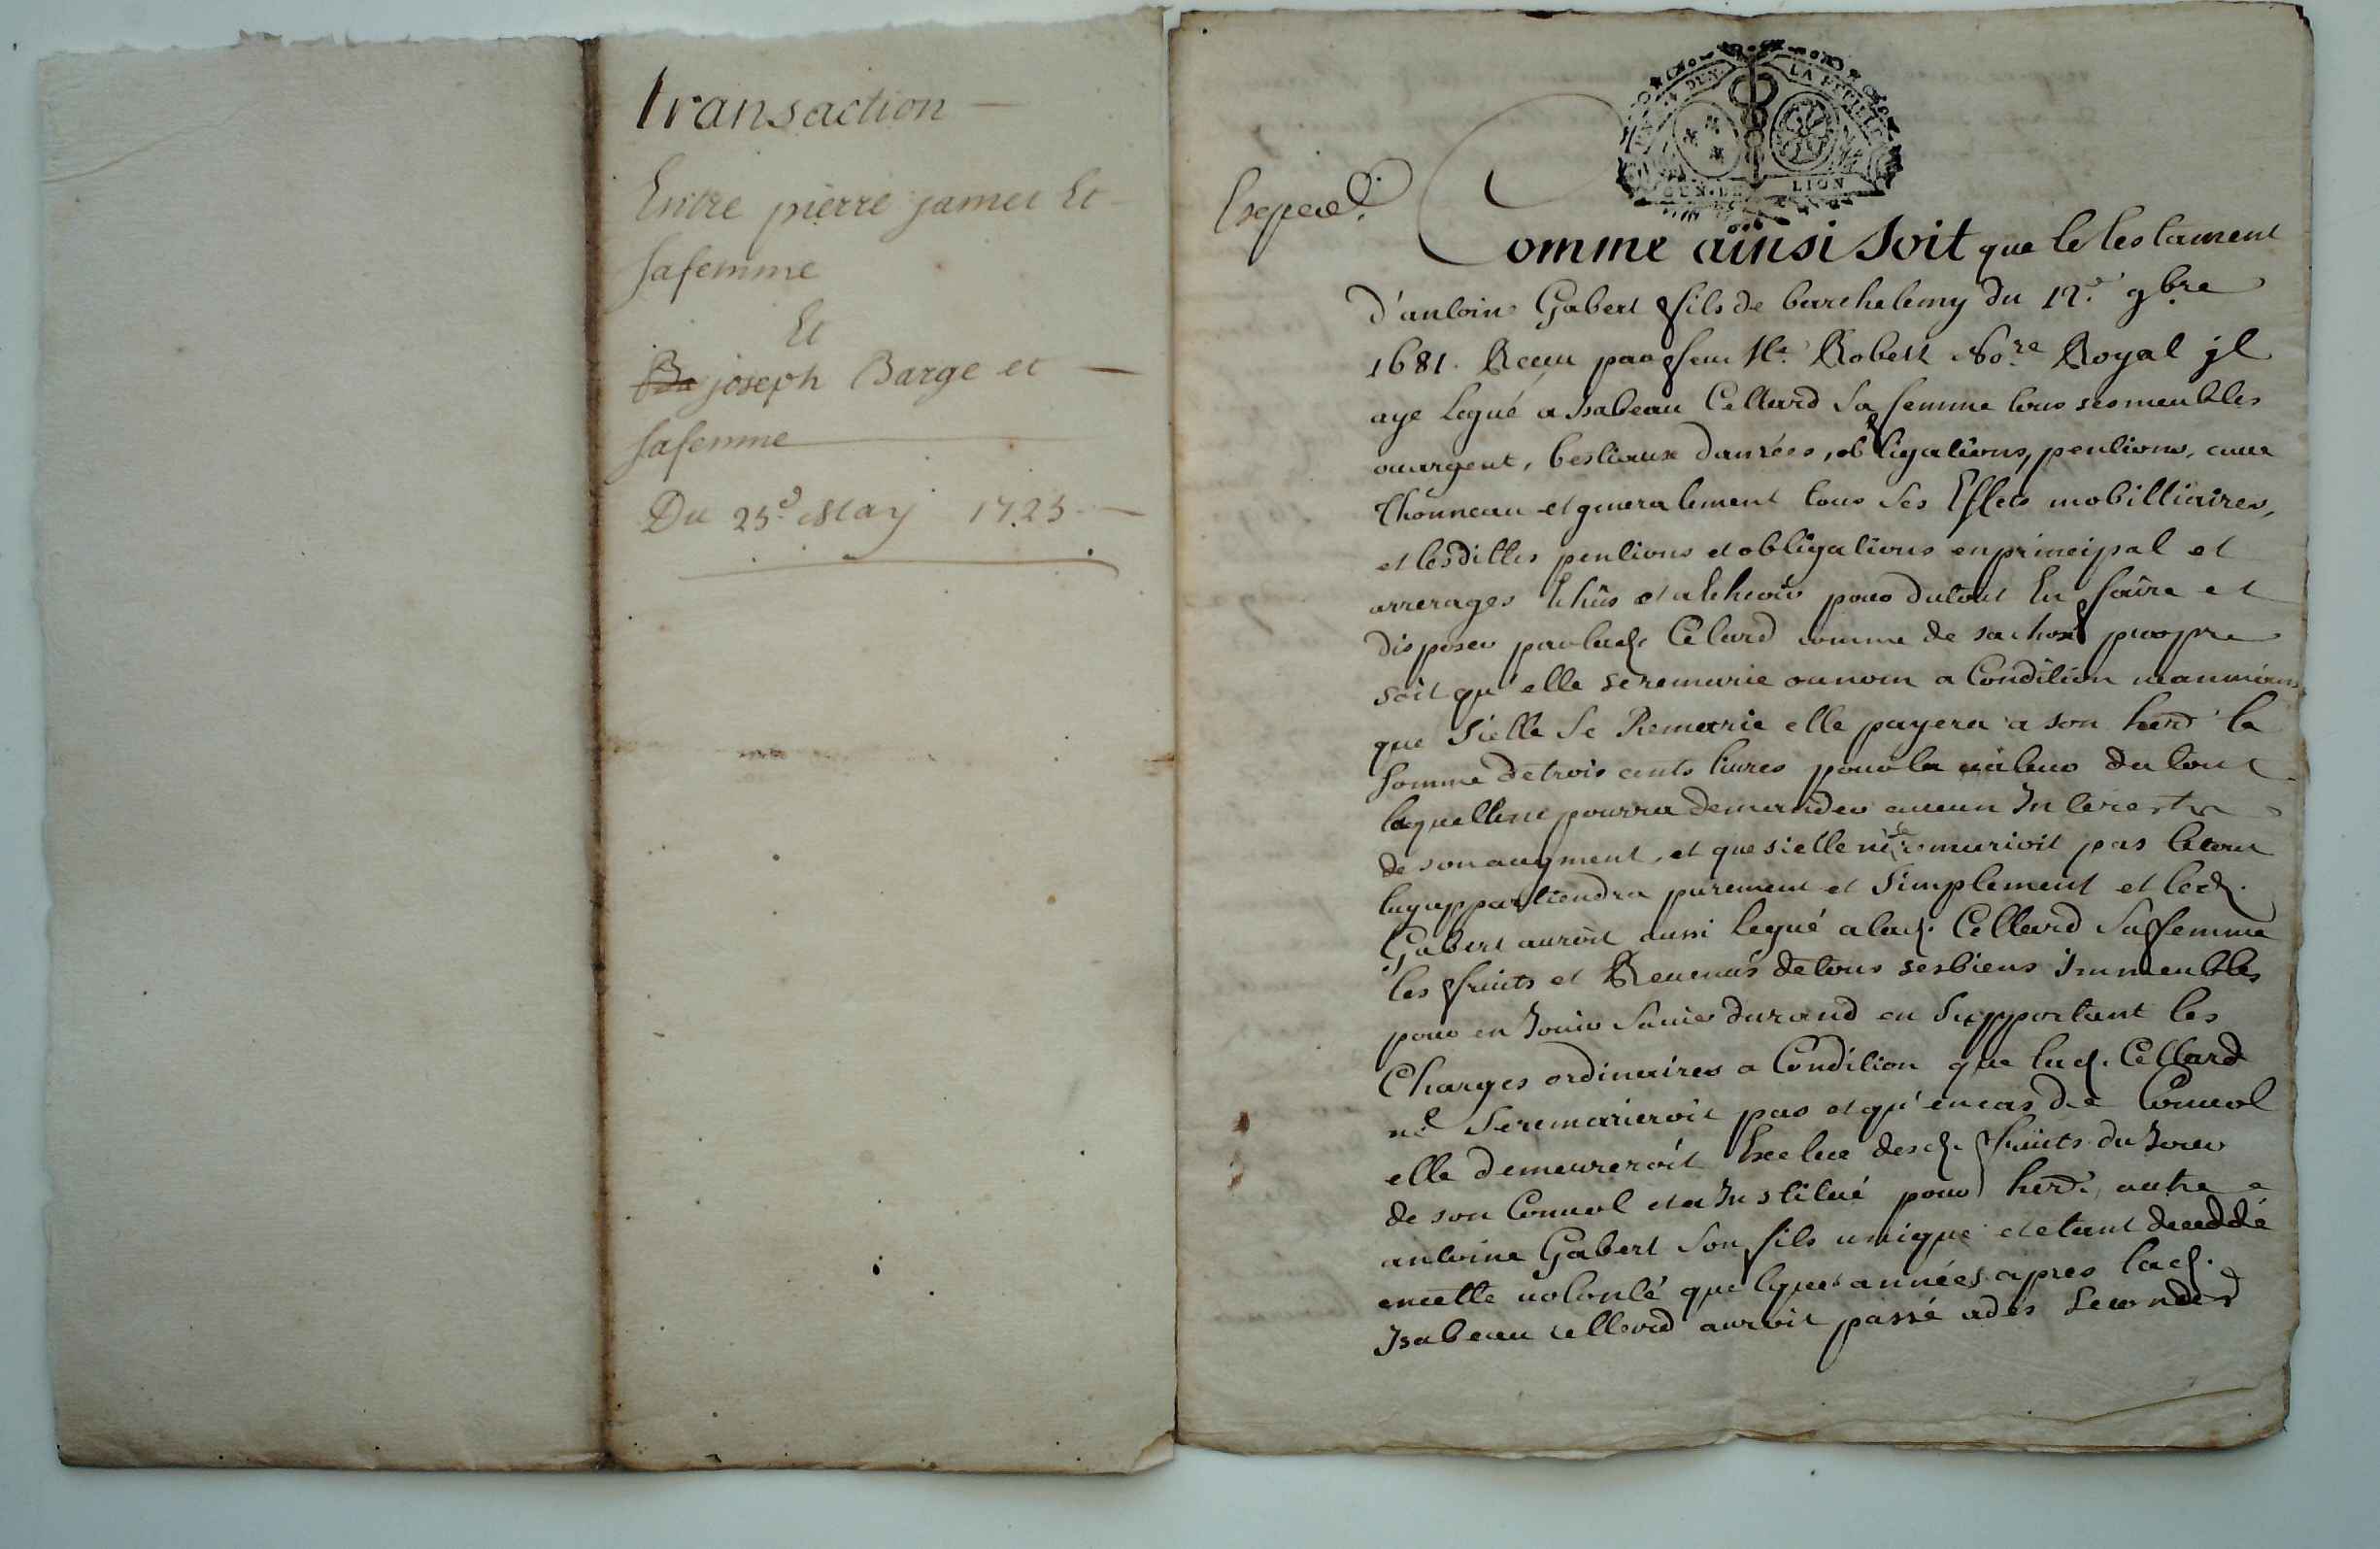 transaction
Entre pierre jamet Et
sa femme
Et
joseph Barge et
sa femme
Du 25e. May 1725
Exped.
LA FEUILLE
LION
Comme ainsi soit que le testament
d'antoine Gabert fils de barthelemy du 12e. 9bre
1681. Receu par feu Me. Robert No.re Royal jl
aye Legué a Isabeau Cellard sa femme tous ses meubles
argent, bestiaux danrées, obligations, pentions, caue
thonneau et generalement tous ses Effets mobilliaires,
et lesdittes pentions et obligations en principal et
arrerages Echûs et a Echeoir pour du tout En faire et
disposer par lad. Celard comme de sa chose propre
soit qu'elle se remarie ou non a Condition neanmoins
que si elle se Remarie elle payera a son herd. la
somme de trois cents livres pour la valeur du tout
laquelle ne pourra demander aucun Interest
de son augment, et que si elle ne se remarioit pas le tout
luy appartiendra purement et simplement et led.
Gabert auroit aussi legué a lad. Cellard sa femme
les fruits et Revenus de tous ses biens immeubles
pour en Jouir sa vie durand en supportant les
Charges ordinaires a Condition que lad. Cellard
ne se remarieroit pas et qu'en cas de Convol
elle demeureroit Excluë desd. fruits du Jour
de son Convol et a Institué pour herd. autre
antoine Gabert son fils unique et etant deceddé
en cette volonté quelques années apres lad.
Isabeau cellard auroit passé a des secondes